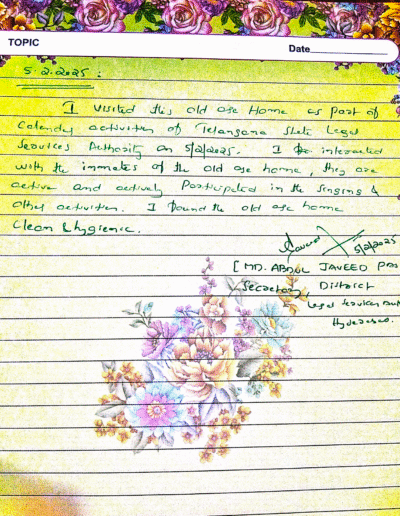 TOPIC
Date
5.2.2025 :
I visited this old age Home as part of
Calendar activities of Telangana State Legal
Services Authority on 5/2/2025. I interacted
with the inmates of the old age home, they are
active and actively Participated in the singing &
other activities. I found the old age home
Clean & hygienic.
5/2/2025
[MD. ABDUL JAVEED PAS
Secretary, District
Legal Services Aut
Hyderabad.